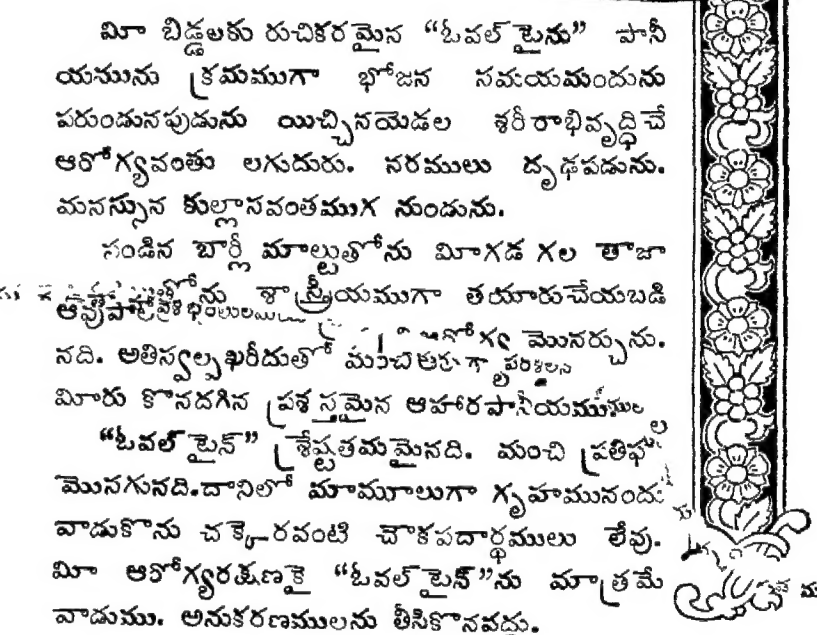 మీ బిడ్డలకు రుచికరమైన “ఓవల్ టైను” పానీ
యమును క్రమముగా భోజన సమయమందును
పరుండునపుడును యిచ్చినయెడల శరీరాభివృద్ధిచే
ఆరోగ్యవంతు లగుదురు. నరములు దృఢపడును.
మనస్సున కుల్లాసవంతముగ నుండును.
పండిన బార్లీ మాల్టుతోను మీగడ గల తాజా
ఆవుపాల శాస్త్రీయముగా తయారుచేయబడి
మొనర్చును.
నది. అతిస్వల్ప ఖరీదుతో మంచి
మీరు కొనదగిన ప్రశస్తమైన ఆహారపానీయము
“ఓవల్ టైన్” శ్రేష్టతమమైనది. మంచి
మొనగునది.దానిలో మామూలుగా గృహమునందు
వాడుకొను చక్కెరవంటి చౌకపదార్థములు లేవు.
మీ ఆరోగ్యరక్షణకై “ఓవల్ టైన్”ను మాత్రమే
వాడుము. అనుకరణములను తీసికొనవదు.